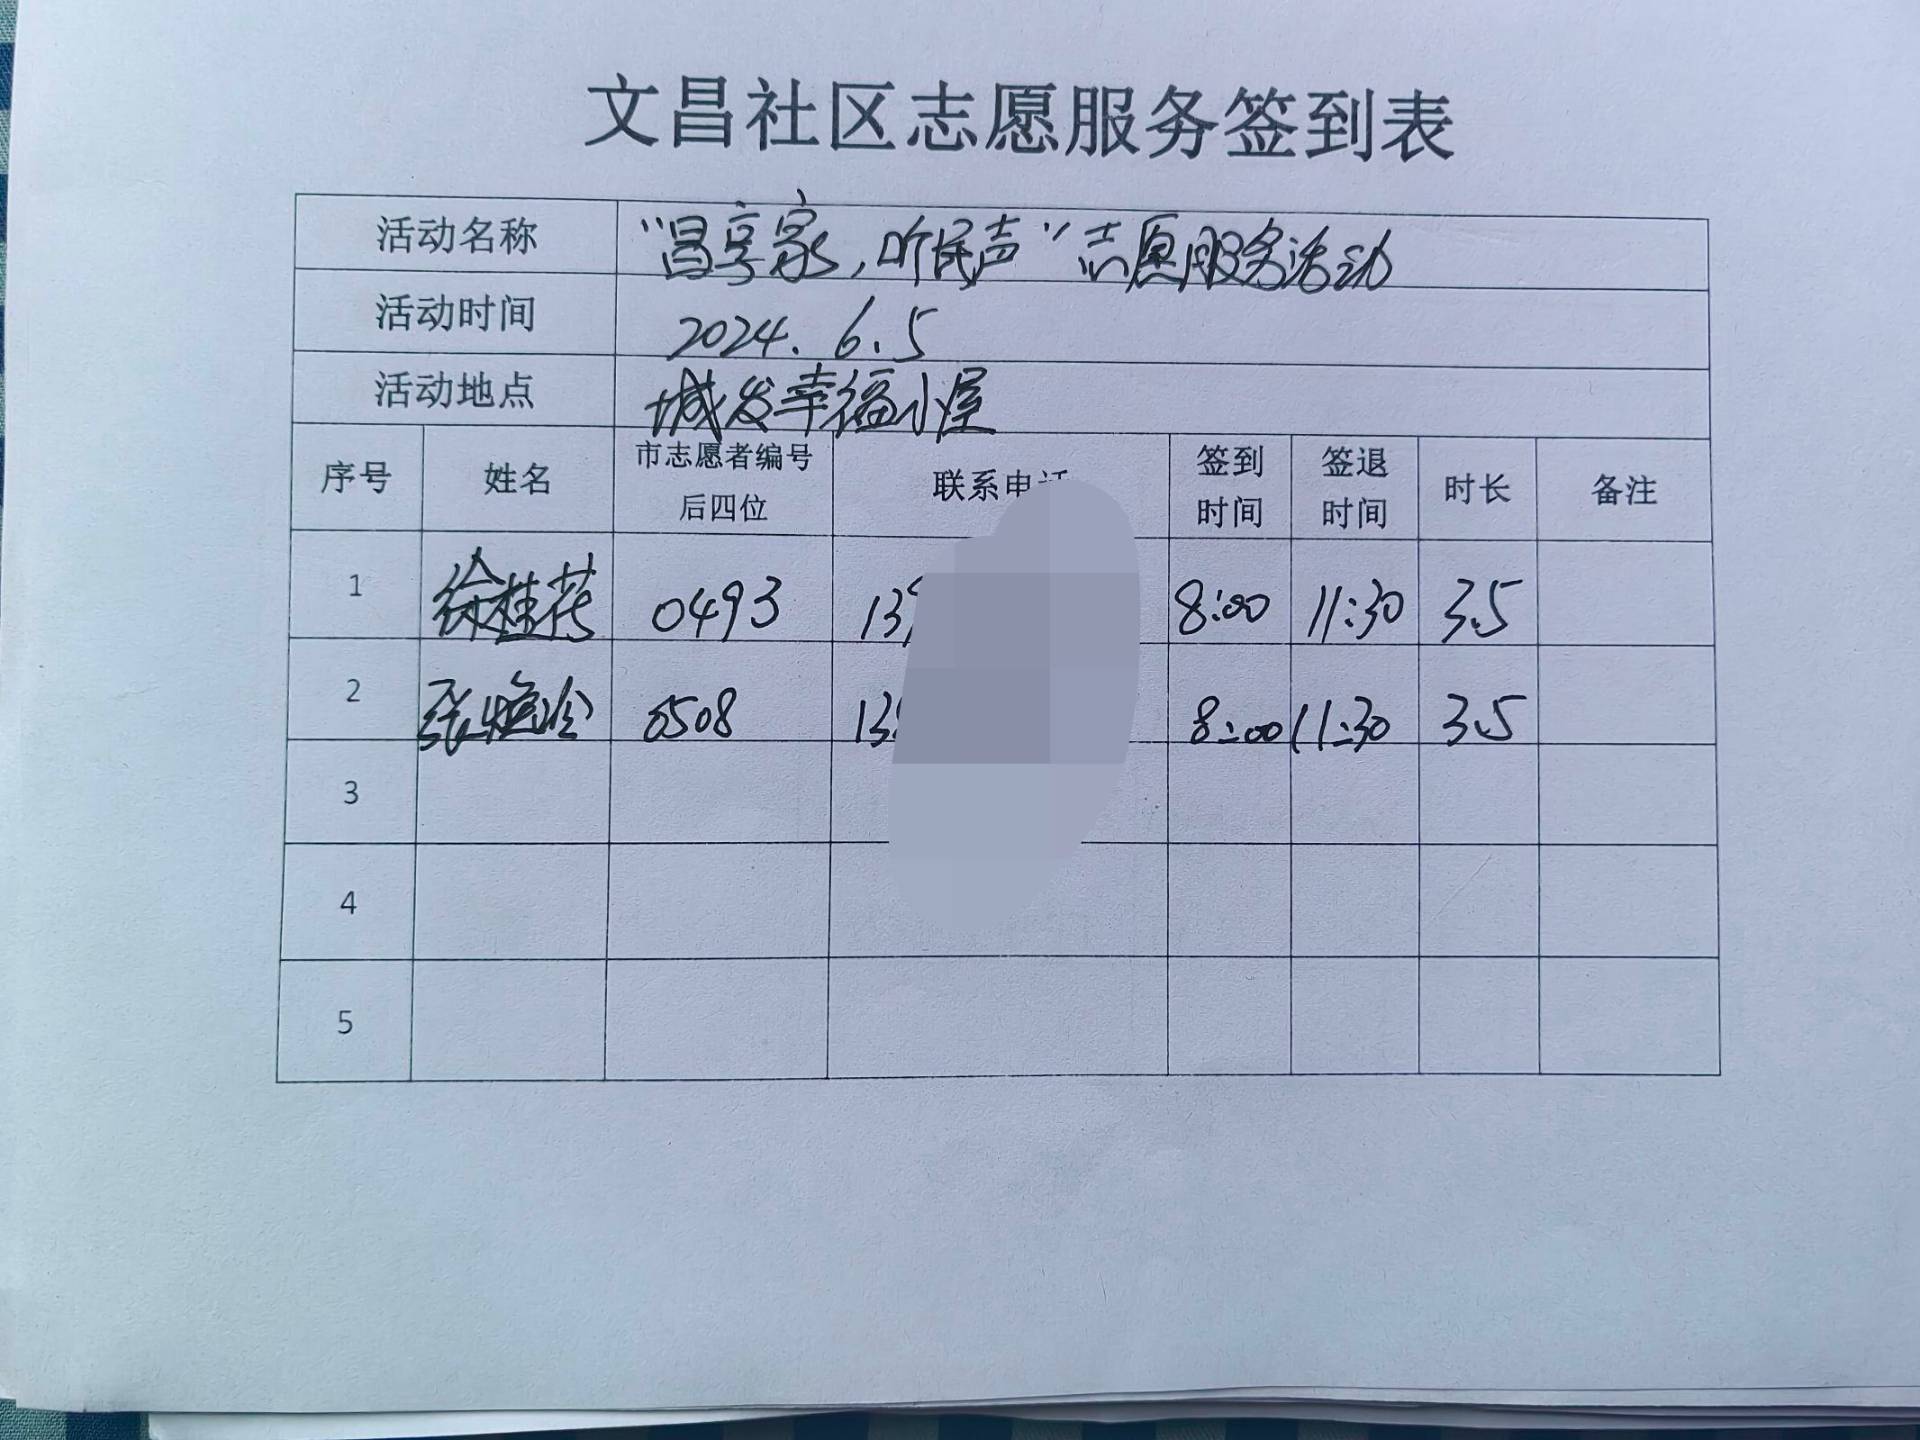 文昌社区志愿服务签到表
活动名称 “昌享家，听民声”志愿服务活动
活动时间 2024.6.5
活动地点 城发幸福小屋
序号 姓名 市志愿者编号后四位 联系电话 签到时间 签退时间 时长 备注
1 徐桂花 0493 139 8:00 11:30 3.5
2 张 0508 13 8:00 11:30 3.5
3
4
5